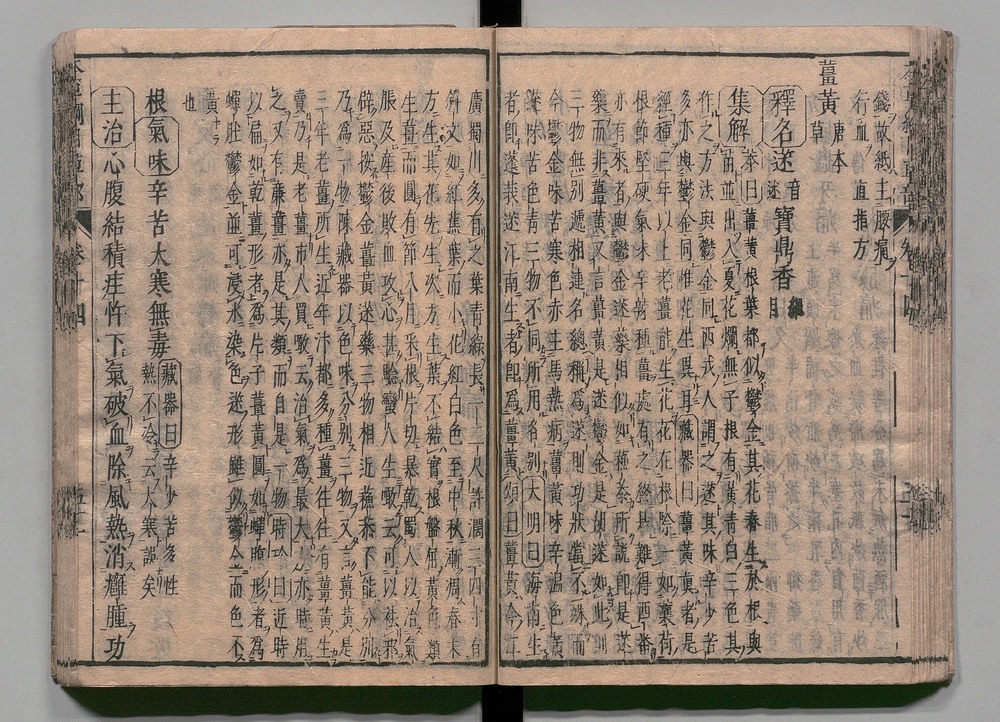 錢故紙主腹痛
行血 直指方
薑黃 唐本草
釋名 蒁 音述 寶鼎香 綱目
集解 恭曰薑黃根葉都似鬱金其花春生於根與
苗並出入夏花爛無子根有黃青白三色其
作之方法與鬱金同西戎人謂之蒁其味辛少苦
多亦與鬱金同惟花生異耳藏器曰薑黃真者是
經種三年以上老薑能生花花在根際一如蘘荷
根節堅硬氣味辛辣種薑處有之終是難得西番
亦有來者與鬱金蒁藥相似如蘇恭所說即是蒁
藥而非薑黃又言薑黃是蒁鬱金是胡蒁如此則
三物無別遞相連名總稱爲蒁則功狀當不殊而
今鬱金味苦寒色赤主馬熱病薑黃味辛溫色黃
蒁味苦色青三物不同所用各別大明曰海南生
者即蓬莪蒁江南生者即爲薑黃頌曰薑黃今江
廣蜀川多有之葉青綠長一二尺許濶三四寸有
斜文如紅蕉葉而小花紅白色至中秋漸凋春末
方生其花先生次方生葉不結實根盤屈黃色類
生薑而圓有節八月采根片切暴乾蜀人以治氣
脹及產後敗血攻心甚驗蠻人生噉云可以祛邪
辟惡按鬱金薑黃蒁藥三物相近蘇恭不能分別
乃爲一物陳藏器以色味分別三物又言薑黃是
三年老薑所生近年汴都多種薑往往有薑黃生
賣乃是老薑市人買噉云治氣爲最大方亦時用
之又有廉薑亦是其類而自是一物時珍曰近時
以扁如乾薑形者爲片子薑黃圓如蟬腹形者爲
蟬肚鬱金並可浸水染色蒁形雖似鬱金而色不
黃
也
根氣味辛苦大寒無毒 藏器曰辛少苦多性
熱不冷云大寒誤矣
主治心腹結積疰忤下氣破血除風熱消癰腫功